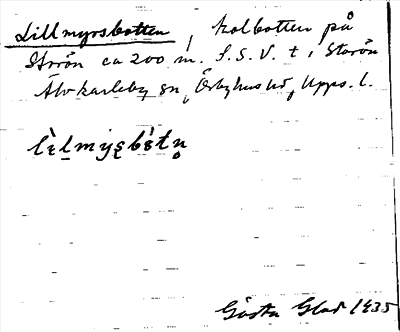 Lillmyrsbotten, kolbotten på
Storön ca 200 m. S.S.V. t. Storön
Älvkarleby sn, Örbyhus hd, Upps. l.
Gösta Glad 1935